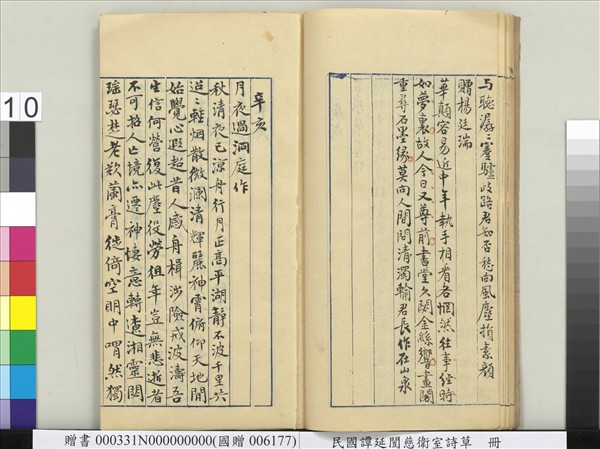 与聽潺潺蹇驢歧路君知否移向風塵損素顏
贈楊廷瑞
華顛容易近中年執手相看各惘然往事經時
如夢裏故人今日又尊前書堂久閟金絲響畫閣
重尋石墨緣莫向人間問清濁輸君長作在山泉
辛亥
月夜過洞庭作
秋清夜已涼舟行月正高平湖靜不波千里共
迢迢輕烟散微瀾清輝麗神霄俯仰天地間
始覺心遐超昔人感舟楫涉險戒波濤吾
生信何營復此塵役勞徂年豈無悲逝者
不可招人亡境亦遷神悽意轉遙湘靈閟
瑤瑟楚老歇蘭膏徙倚空明中喟然獨
10
贈書 000331N000000000(國贈 006177)
民國譚延闓慈衛室詩草 冊